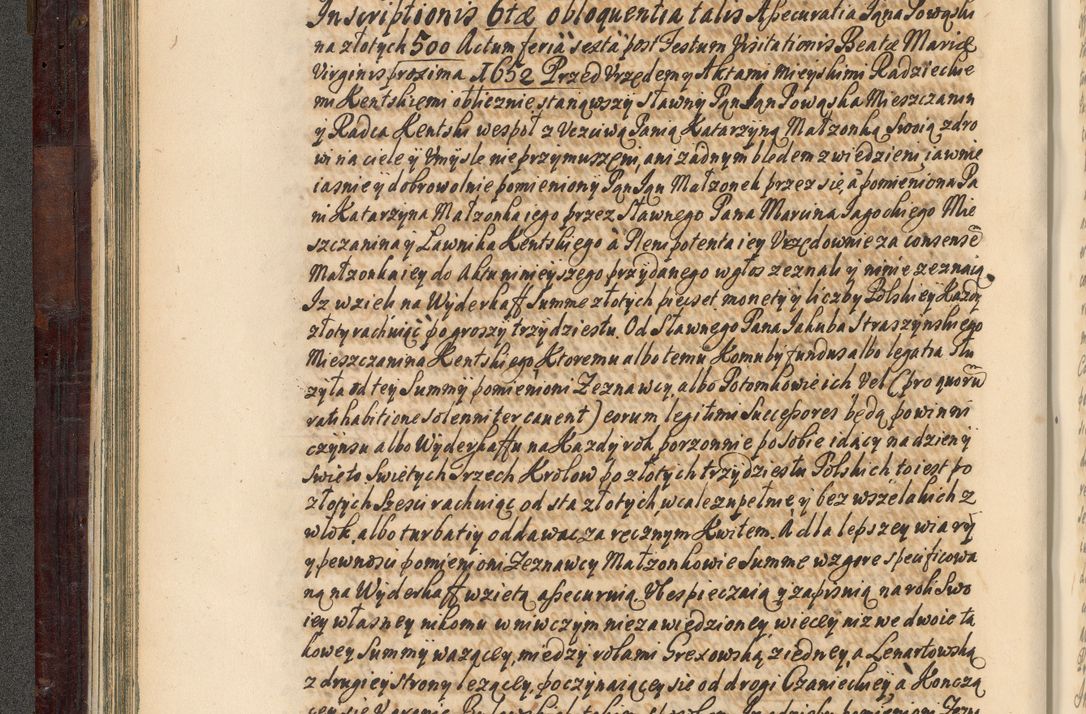 Inscriptionis 6tæ obloquentia talis Assecuratia Jana Powąski
na złotych 500 Actum feria sexta post Festum Visitationis Beatæ Mariæ
Virginis proxima 1652 Przed Vrzędem y Aktami mieyskimi Radzieckie
mi Kentskiemi oblicznie stanąwszy sławny Pan Jan Powąska Mieszczanin
y Radca Kentski wespoł z Vczciwą Panią Katarzyną Małzonką swoią zdro
wi na ciele y Vmysle nie przymuszeni, ani zadnym błedem zwiedzieni, iawnie
iasnie y dobrowolnie pomieniony Pan Jan Małzonek przez się à pomieniona Pa
ni Katarzyna Małzonka iego przez Sławnego Pana Marcina Jagockiego Mie
szczanina y Ławnika Kentskiego à Plenipotenta iey Vrzędownie za consensē
Małzonka iey do Aktu ninieyszego przydanego w głos zeznali y ninie zeznaią
Jz wzieli na Wyderkaff Summe złotych piecset monety y liczby Polskiey Kazdy
złoty rachuiąc po groszy trzydziestu. Od Sławnego Pana Jakuba Straszynskiego
Mieszczanina Kentskiego, Ktoremu albo temu Komuby fundus albo legatia słu
zyła od tey Summy pomienioni Zeznawcy albo Potomkowie ich Vel (pro quorū
ratihabitione solenniter cauent) eorum legitimi Successores będą powinni
czynsu albo Wyderkaffu na Kazdy rok porzonnie po sobie idący na dzien y
swieto Swietych Trzech Krolow po złotych trzydziestu Polskich to iest po
złotych szesci rachuiąc od sta złotych wcale zupełnie y bez wszelakich z
włok albo turbatiy oddawac za recznym Kwitem. A dla lepszey wiary
y pewnosci pomienioni Zeznawcy Małzonkowie Summe wzgore specificowa
ną na Wyderkaff wzietą assecuruią Vbespieczaią y zapisuią na roli swo
iey własney nikomu w niwczym niezawiedzioney wiecey niz we dwoie ta
kowey Summy wazącey, miedzy rolami Grexowską z iedney a Lenartowską
z drugiey strony lezącey, poczynaiącey sie od drogi Czanieckiey à Koncza